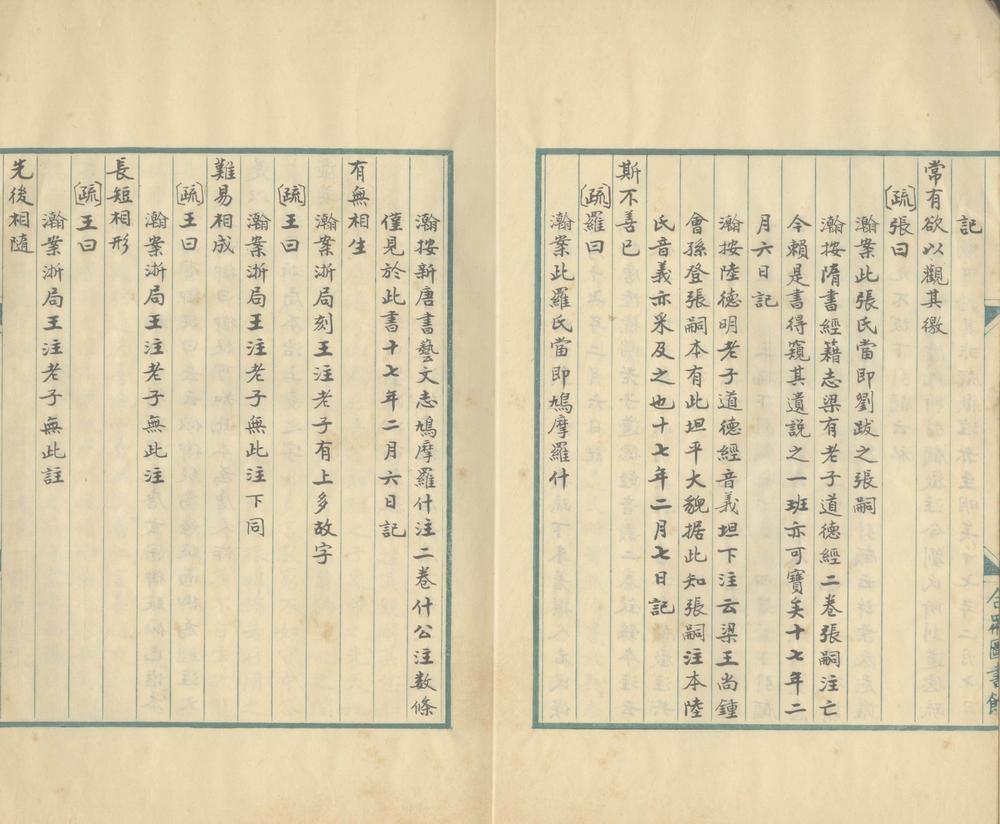 記
常有欲以觀其徼
疏張曰
瀚案此張氏當即劉跋之張嗣
瀚按隋書經籍志梁有老子道德經二卷張嗣注亡
今賴是書得窺其遺説之一班亦可寶矣十七年二
月六日記
瀚按陸德明老子道德經音義坦下注云梁王尚鍾
會孫登張嗣本有此坦平大貌据此知張嗣注本陸
氏音義亦采及之也十七年二月七日記
斯不善已
疏羅曰
瀚案此羅氏當即鳩摩羅什
瀚按新唐書藝文志鳩摩羅什注二卷什公注数條
僅見於此書十七年二月六日記
有無相生
瀚案浙局刻王注老子有上多故字
疏王曰
瀚案浙局王注老子無此注下同
難易相成
疏王曰
瀚案浙局王注老子無此注
長短相形
疏王曰
瀚案浙局王注老子無此註
先後相隨
書館